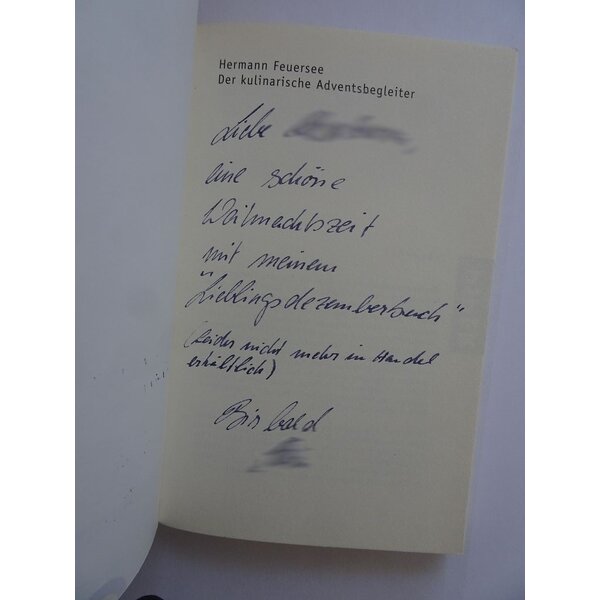 Hermann Feuersee
Der kulinarische Adventsbegleiter
Liebe
eine schöne
Weihnachtszeit
mit meinem
"Lieblingsdezemberbuch"
(Leider nicht mehr im Handel
erhältlich)
Bis bald